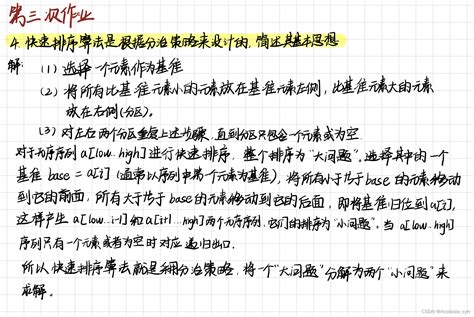 第三次作业
4. 快速排序算法是根据分治策略来设计的,简述其基本思想
解: (1) 选择一个元素作为基准
(2) 将所有比基准元素小的元素放在基准元素左侧,比基准元素大的元素
放在右侧(分区)。
(3) 对左右两个分区重复上述步骤,直到分区只包含一个元素或为空
对于无序序列a[low..high]进行快速排序,整个排序为“大问题”。选择其中的一个
基准base = a[i](通常以序列中第一个元素为基准),将所有小于等于base的元素移动
到它的前面,所有大于等于base的元素移动到它的后面,即将基准归位到a[i],
这样产生a[low..i-1]和a[i+1..high]两个无序序列,它们的排序为“小问题”。当a[low..high]
序列只有一个元素或者为空时对应递归出口。
所以快速排序算法就是采用分治策略,将一个“大问题”分解为两个“小问题”来
求解。